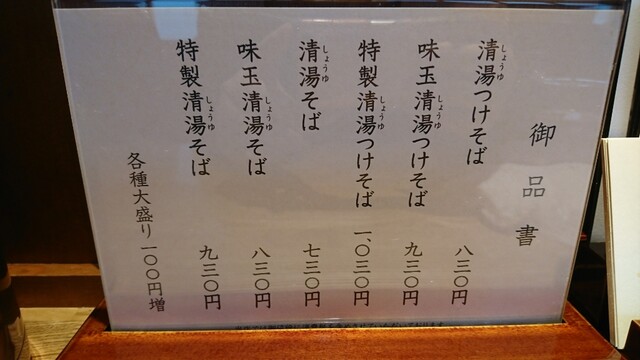 御品書
清湯つけそば 八三〇円
味玉清湯つけそば 九三〇円
特製清湯つけそば 一、〇三〇円
清湯そば 七三〇円
味玉清湯そば 八三〇円
特製清湯そば 九三〇円
各種大盛り一〇〇円増
しょうゆ
しょうゆ
しょうゆ
しょうゆ
しょうゆ
しょうゆ